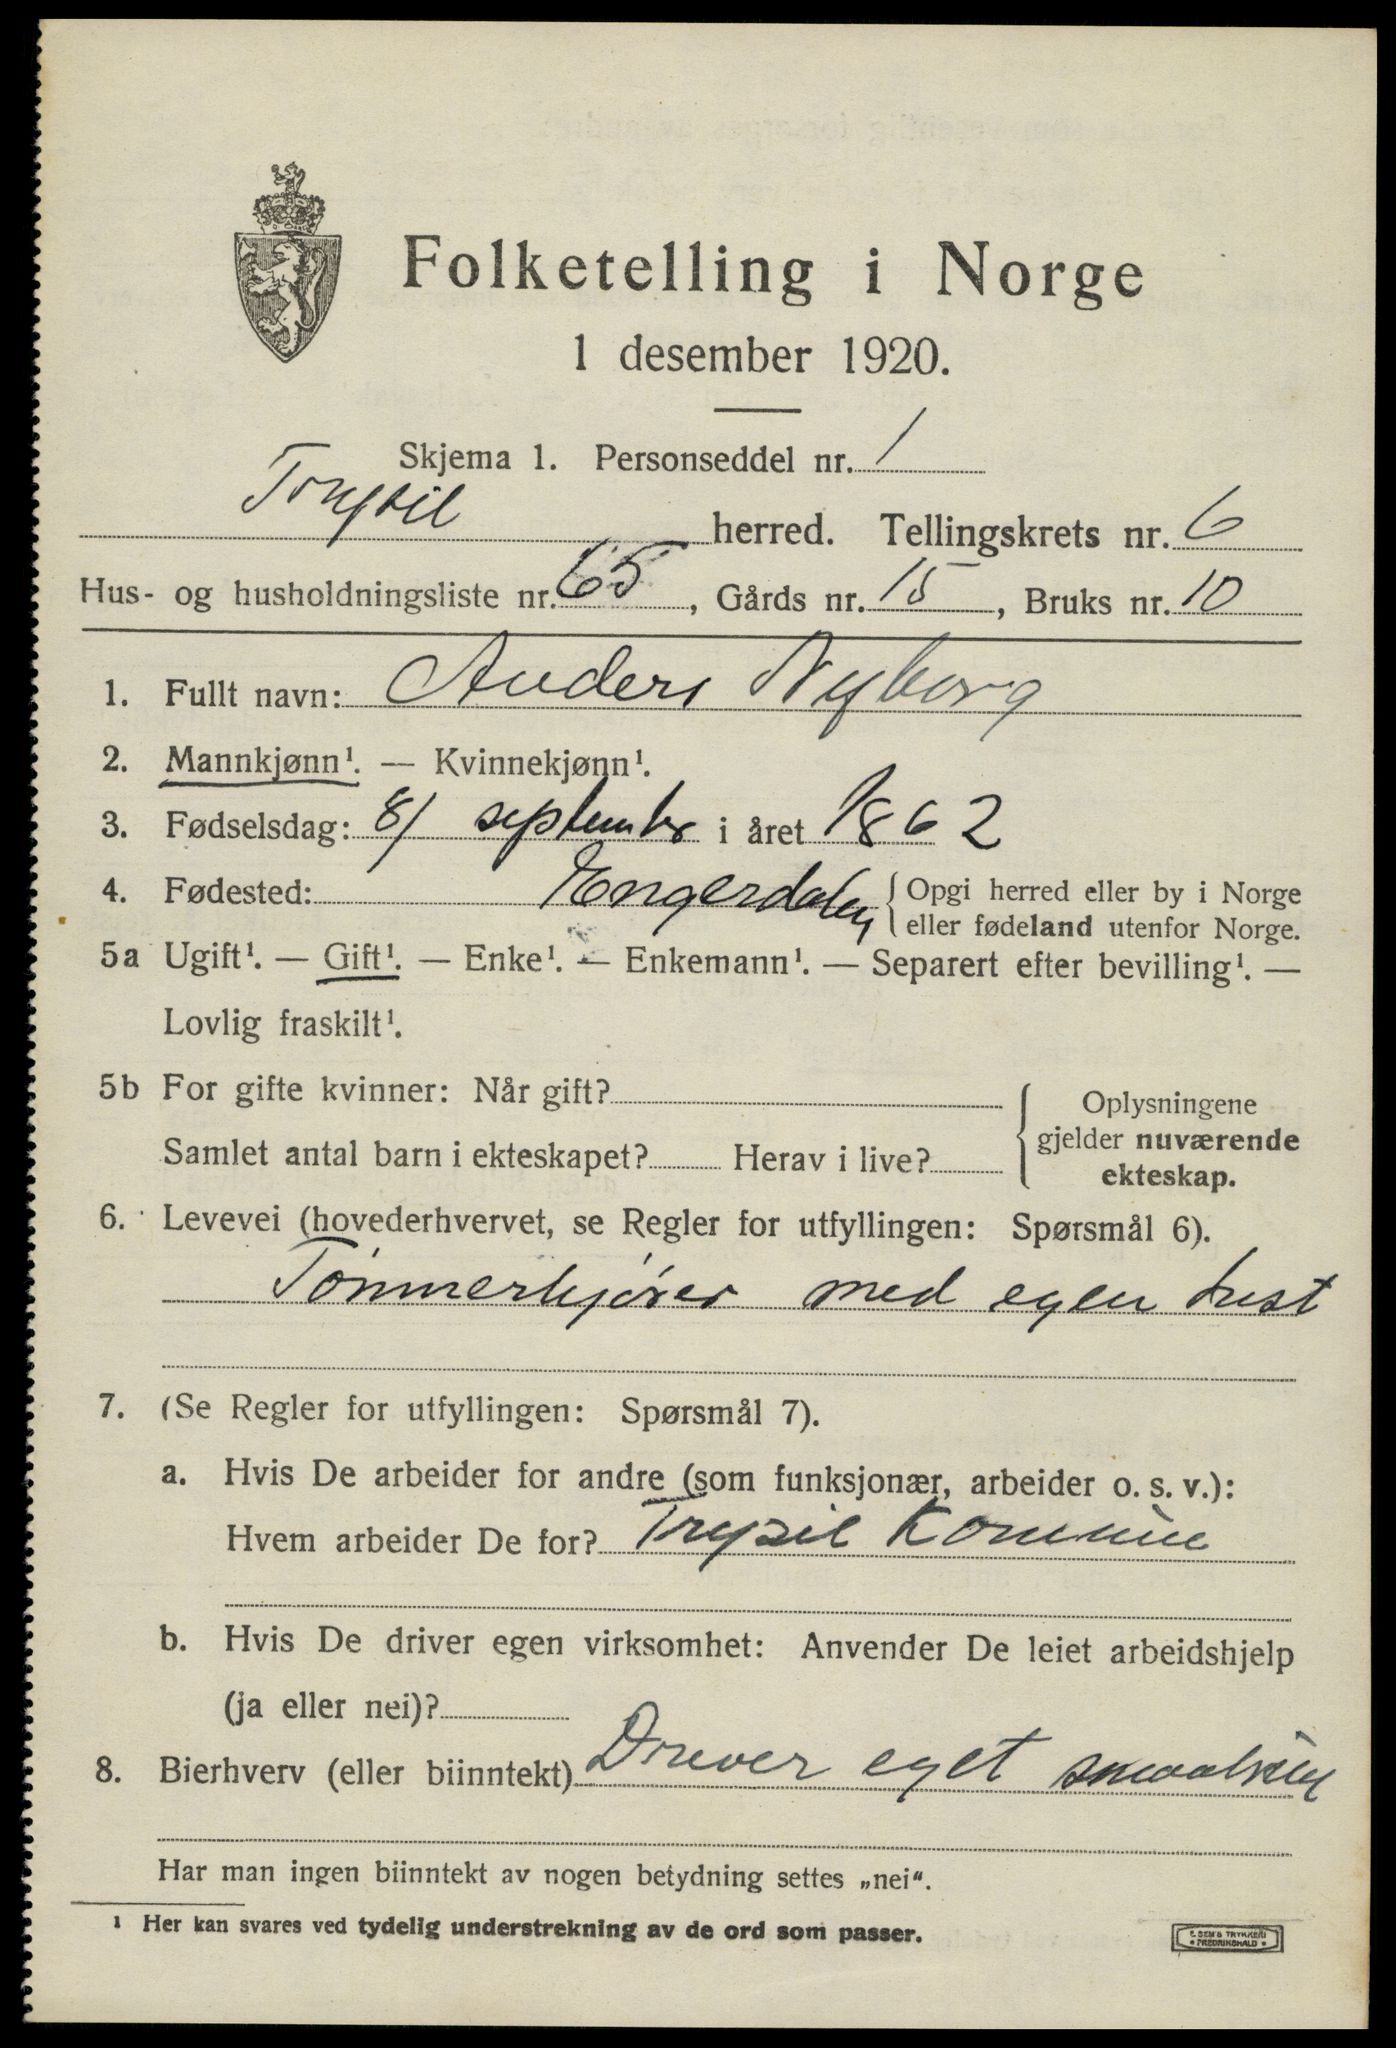 Folketelling i Norge
1 desember 1920.
Skjema 1. Personseddel nr. 1
Trysil herred. Tellingskrets nr. 6
Hus- og husholdningsliste nr. 65, Gårds nr. 15, Bruks nr. 10
1. Fullt navn: Anders Nyborg
2. Mannkjønn¹. — Kvinnekjønn¹.
3. Fødselsdag: 8/ september i året 1862
4. Fødested: Engerdalen { Opgi herred eller by i Norge
eller fødeland utenfor Norge.
5a Ugift¹. — Gift¹. — Enke¹. — Enkemann¹. — Separert efter bevilling¹. —
Lovlig fraskilt¹.
5b For gifte kvinner: Når gift?
Samlet antal barn i ekteskapet? Herav i live?
{ Oplysningene
gjelder nuværende
ekteskap.
6. Levevei (hovederhvervet, se Regler for utfyllingen: Spørsmål 6).
Tømmerkjører med egen hest
7. (Se Regler for utfyllingen: Spørsmål 7).
a. Hvis De arbeider for andre (som funksjonær, arbeider o. s. v.):
Hvem arbeider De for? Trysil Kommune
b. Hvis De driver egen virksomhet: Anvender De leiet arbeidshjelp
(ja eller nei)?
8. Bierhverv (eller biinntekt) Driver eget
Har man ingen biinntekt av nogen betydning settes „nei".
¹ Her kan svares ved tydelig understrekning av de ord som passer.
E. SEM'S TRYKKERI
• FREDRIKSHALD •